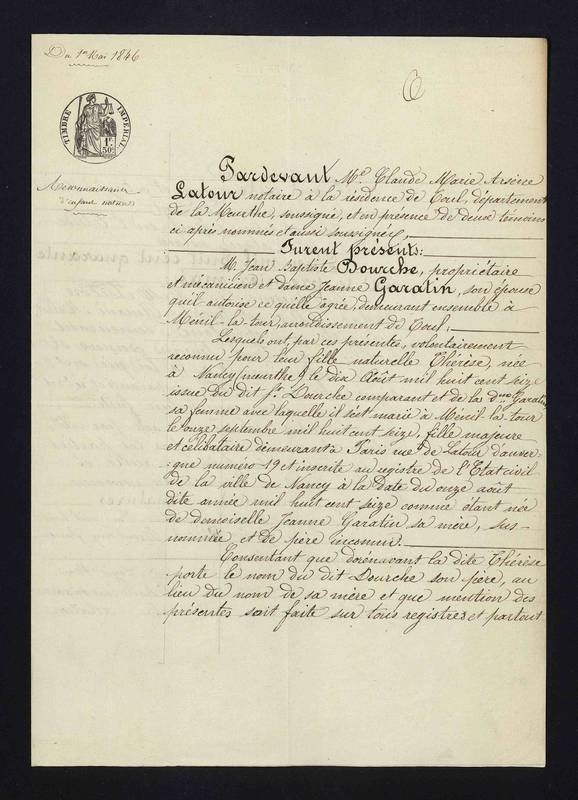 Du 1er Mai 1846
TIMBRE IMPERIAL
1F.
50c
Reconnaissance
d'enfant naturel
Pardevant Me Claude Marie Arsène
Latour notaire à la résidence de Toul, département
de la Meurthe, soussigné, et en présence de deux témoins
ci après nommés et aussi soussignés,
Furent présents:
M. Jean Baptiste Dourche, propriétaire
et mécanicien et dame Jeanne Garatin, son épouse
qu'il autorise ce qu'elle agrée, demeurant ensemble à
Ménil-la-tour, arrondissement de Toul,
Lesquels ont, par ces présentes, volontairement
reconnu pour leur fille naturelle Thérèse, née
à Nancy (meurthe) le dix Août mil huit cent seize
issue du dit Sr. Dourche comparant et de la dme Garatin
sa femme avec laquelle il s'est marié à Ménil-la-tour
le onze septembre mil huit cent seize, fille majeure
et célibataire demeurant à Paris rue de Latour d'auver-
gne numero 19 et inscrite au registre de l'Etat civil
de la ville de Nancy à la Date du onze août
dite année mil huit cent seize comme étant née
de demoiselle Jeanne Garatin sa mère, sus-
nommée, et de père inconnu.
Consentant que dorénavant la dite Thérèse
porte le nom du dit Dourche son père, au
lieu du nom de sa mère et que mention des
présentes soit faite sur tous registres et partout